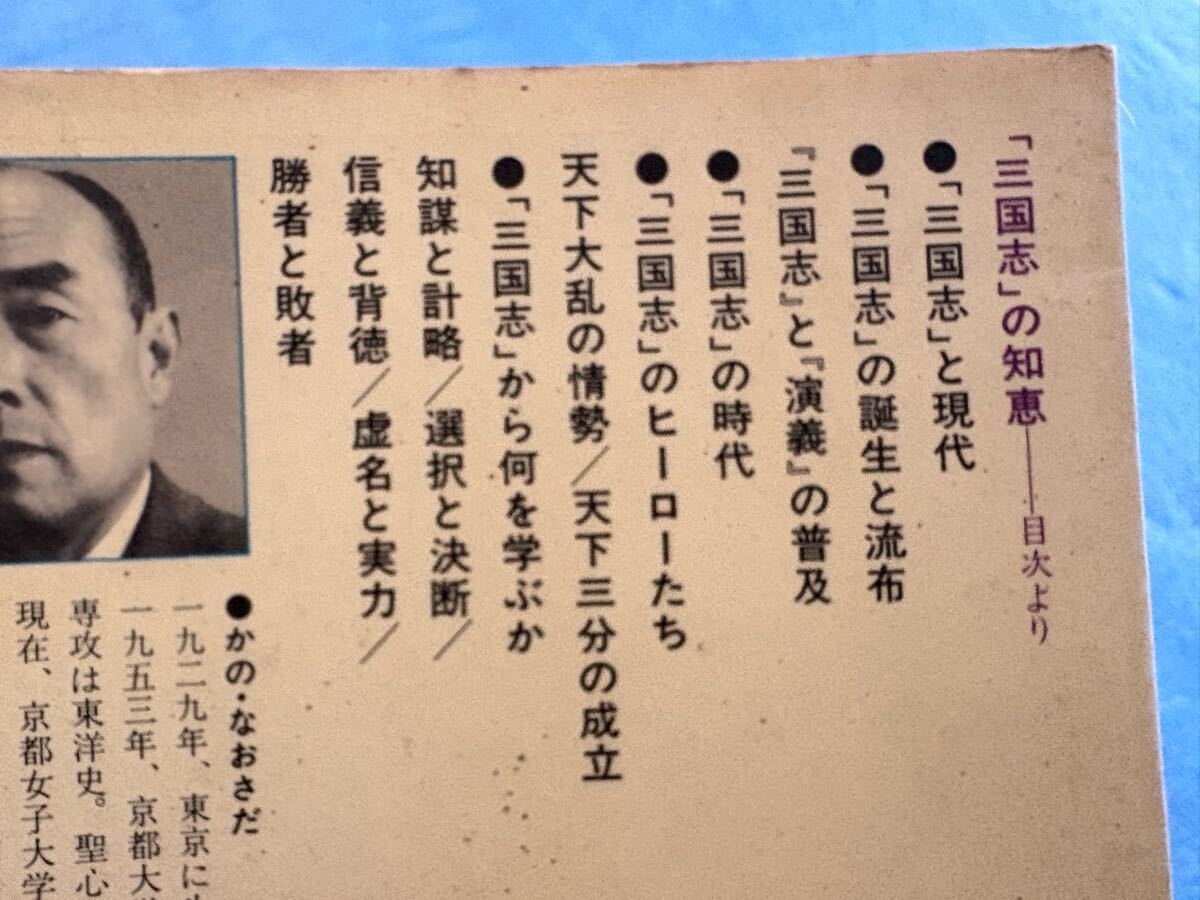 「三国志」の知恵――目次より
●「三国志」と現代
●「三国志」の誕生と流布
『三国志』と『演義』の普及
●「三国志」の時代
●「三国志」のヒーローたち
天下大乱の情勢／天下三分の成立
●「三国志」から何を学ぶか
知謀と計略／選択と決断／
信義と背徳／虚名と実力／
勝者と敗者
●かの・なおさだ
一九二九年、東京に
一九五三年、京都大
専攻は東洋史。聖心
現在、京都女子大学